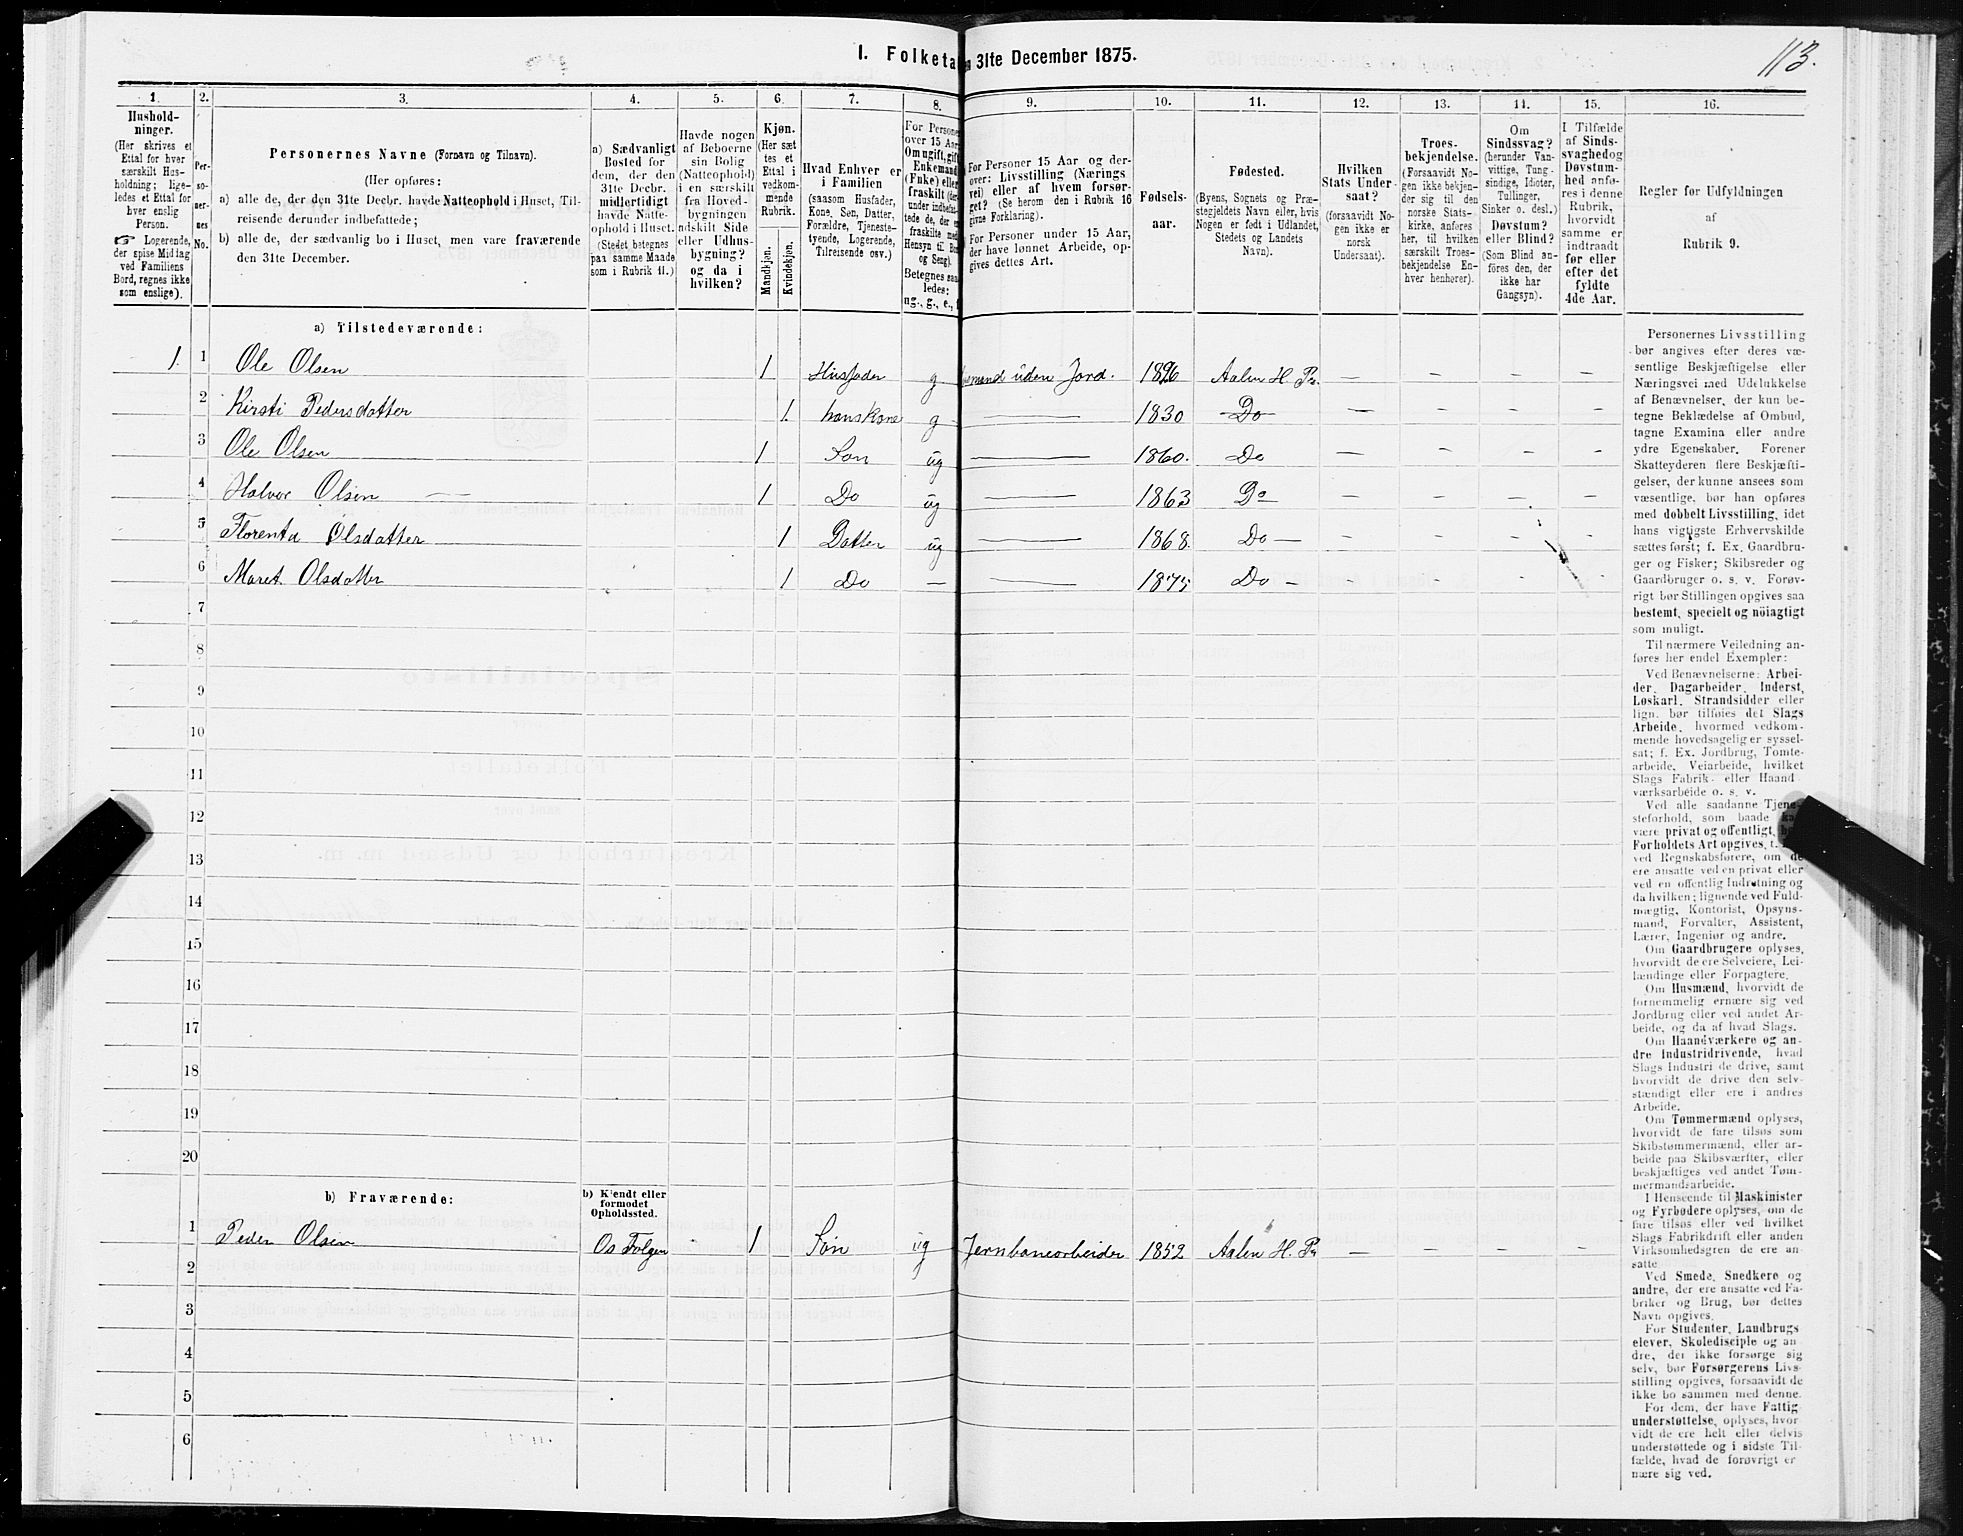 I. Folketa 31te December 1875.
113.
1. 2. 3. 4. 5. 6. 7. 8. 9. 10. 11. 12. 13. 14. 15. 16.
Hushold-
ninger.
(Her skrives et
Ettal for hver
særskilt Hus-
holdning; lige-
ledes et Ettal for
hver enslig
Person.
☞ Logerende,
der spise Middag
ved Familiens
Bord, regnes ikke
som enslige).
Per-
so-
ner-
nes
No.
Personernes Navne (Fornavn og Tilnavn).
(Her opføres:
a) alle de, der den 31te Decbr. havde Natteophold i Huset, Til-
reisende derunder indbefattede;
b) alle de, der sædvanlig bo i Huset, men vare fraværende
den 31te December.
a) Sædvanligt
Bosted for
dem, der den
31te Decbr.
midlertidigt
havde Natte-
ophold i Huset.
(Stedet betegnes
paa samme Maade
som i Rubrik 11.)
Havde nogen
af Beboerne
sin Bolig
(Natteophold)
i en særskilt
fra Hoved-
bygningen
adskilt Side
eller Udhus-
bygning?
og da i
hvilken?
Kjøn.
(Her sæt
tes et
Ettal i
vedkom-
mende
Rubrik.
Mandkjøn.
Kvindekjøn.
Hvad Enhver er
i Familien
(saasom Husfader,
Kone, Søn, Datter,
Forældre, Tjeneste-
tyende, Logerende,
Tilreisende osv.)
For Persone
over 15 Aar
Om ugift, gift
Enkemand
(Enke) eller
fraskilt (der
under indbefat-
tede de, der er
fraskilte med
Hensyn til Bo
og Seng).
Betegnes saa
ledes:
ug., g., e., f
For Personer 15 Aar og der-
over: Livsstilling (Nærings
vei) eller af hvem forsør-
get? (Se herom den i Rubrik 16
givne Forklaring).
For Personer under 15 Aar,
der have lønnet Arbeide, op-
gives dettes Art.
Fødsels-
aar.
Fødested.
(Byens, Sognets og Præ-
stegjeldets Navn eller, hvis
Nogen er født i Udlandet,
Stedets og Landets
Navn).
Hvilken
Stats Under-
saat?
(forsaavidt No-
gen ikke er
norsk
Undersaat).
Troes-
bekjendelse.
(Forsaavidt No-
gen ikke bekjen-
der sig til den
norske Stats-
kirke, anføres
her, til hvilken
særskilt Troes-
bekjendelse En-
hver henhører).
Om
Sindssvag?
(herunder Van-
vittige, Tung-
sindige, Idioter,
Tullinger,
Sinker o. desl.)
Døvstum?
eller Blind?
(Som Blind an-
føres den, der
ikke har
Gangsyn).
I Tilfælde
af Sinds-
svaghed og
Døvstum-
hed anfø-
res i denne
Rubrik,
hvorvidt
samme er
indtraadt
før eller
efter det
fyldte
4de Aar.
Regler før Udfyldningen
af
Rubrik 9.
a) Tilstedeværende:
1. 1 Ole Olsen 1 Husfader g mand uden Jord. 1826 Aalen H. Pr. — — — —
2 Kirsti Pedersdatter 1. hans Kone g — 1830 Do — — — —
3 Ole Olsen 1 Søn ug — 1860. Do — — — —
4 Halvor Olsen — 1 Do ug — 1863 Do — — — —
5 Florenta Olsdatter 1 Datter ug — 1868 Do — — — — —
6 Maret Olsdatter 1 Do — — 1875 Do — — — — —
7
8
9
10
11
12
13
14
15
16
17
18
19
20
b) Fraværende:
b) Kjendt eller
formodet
Opholdssted.
1 Peder Olsen Os Tolgen 1 Søn ug Jernbanearbeider 1852 Aalen H. Pr — — — —
2
3
4
5
6
Personernes Livsstilling
bør angives efter deres væ-
sentlige Beskjæftigelse eller
Næringsvei med Udelukkelse
af Benævnelser, der kun be-
tegne Beklædelse af Ombud,
tagne Examina eller andre
ydre Egenskaber. Forener
Skatteyderen flere Beskjæfti-
gelser, der kunne ansees som
væsentlige, bør han opføres
med dobbelt Livsstilling, idet
hans vigtigste Erhvervskilde
sættes først; f. Ex. Gaardbru-
ger og Fisker; Skibsreder og
Gaardbruger o. s. v. Forøv-
rigt bør Stillingen opgives saa
bestemt, specielt og nöiagtigt
som muligt.
Til nærmere Veiledning an-
føres her endel Exempler:
Ved Benævnelserne: Arbei-
der, Dagarbeider, Inderst,
Løskarl, Strandsidder eller
lign. bør tilføies det Slags
Arbeide, hvormed vedkom-
mende hovedsagelig er syssel-
sat; f. Ex. Jordbrug, Tomte-
arbeide, Veiarbeide, hvilket
Slags Fabrik- eller Haand
værksarbeide o. s. v.
Ved alle saadanne Tjene-
steforhold, som baade ka
være privat og offentligt, bø
Forholdets Art opgives, t.
ved Regnskabsførere, om de
ere ansatte ved en privat eller
ved en offentlig Indretning og
da hvilken; lignende ved Fuld-
mægtig, Kontorist, Opsyns-
mand, Forvalter, Assistent,
Lærer, Ingeniør og andre.
Om Gaardbrugere oplyses,
hvorvidt de ere Selveiere, Lei-
lændinge eller Forpagtere.
Om Husmænd, hvorvidt de
fornemmelig ernære sig ved
Jordbrug eller ved andet Ar-
beide, og da af hvad Slags.
Om Haandværkere og an-
dre Industridrivende, hvad
Slags Industri de drive, samt
hvorvidt de drive den selv-
stændigt eller ere i andres
Arbeide.
Om Tømmermænd oplyses,
hvorvidt de fare tilsøs som
Skibstømmermænd, eller ar-
beide paa Skibsværfter, eller
beskjæftiges ved andet Tøm-
mermandsarbeide.
I Henseende til Maskinister
og Fyrbødere oplyses, om de
fare tilsøs eller ved hvilket
Slags Fabrikdrift eller anden
Virksomhedsgren de ere an-
satte
Ved Smede, Snedkere og
andre, der ere ansatte ved Fa-
briker og Brug, bør dettes
Navn opgives.
For Studenter, Landbrugs
elever, Skoledisciple og an-
dre, der ikke forsørge sig
selv, bør Forsørgerens Livs-
stilling opgives, forsaavidt de
ikke bo sammen med denne.
For dem, der have Fattig-
understøttelse, oplyses, hvor-
vidt de ere helt eller delvis
understøttede og i sidste Til-
fælde, hvad de forøvrigt er
nære sig ved.